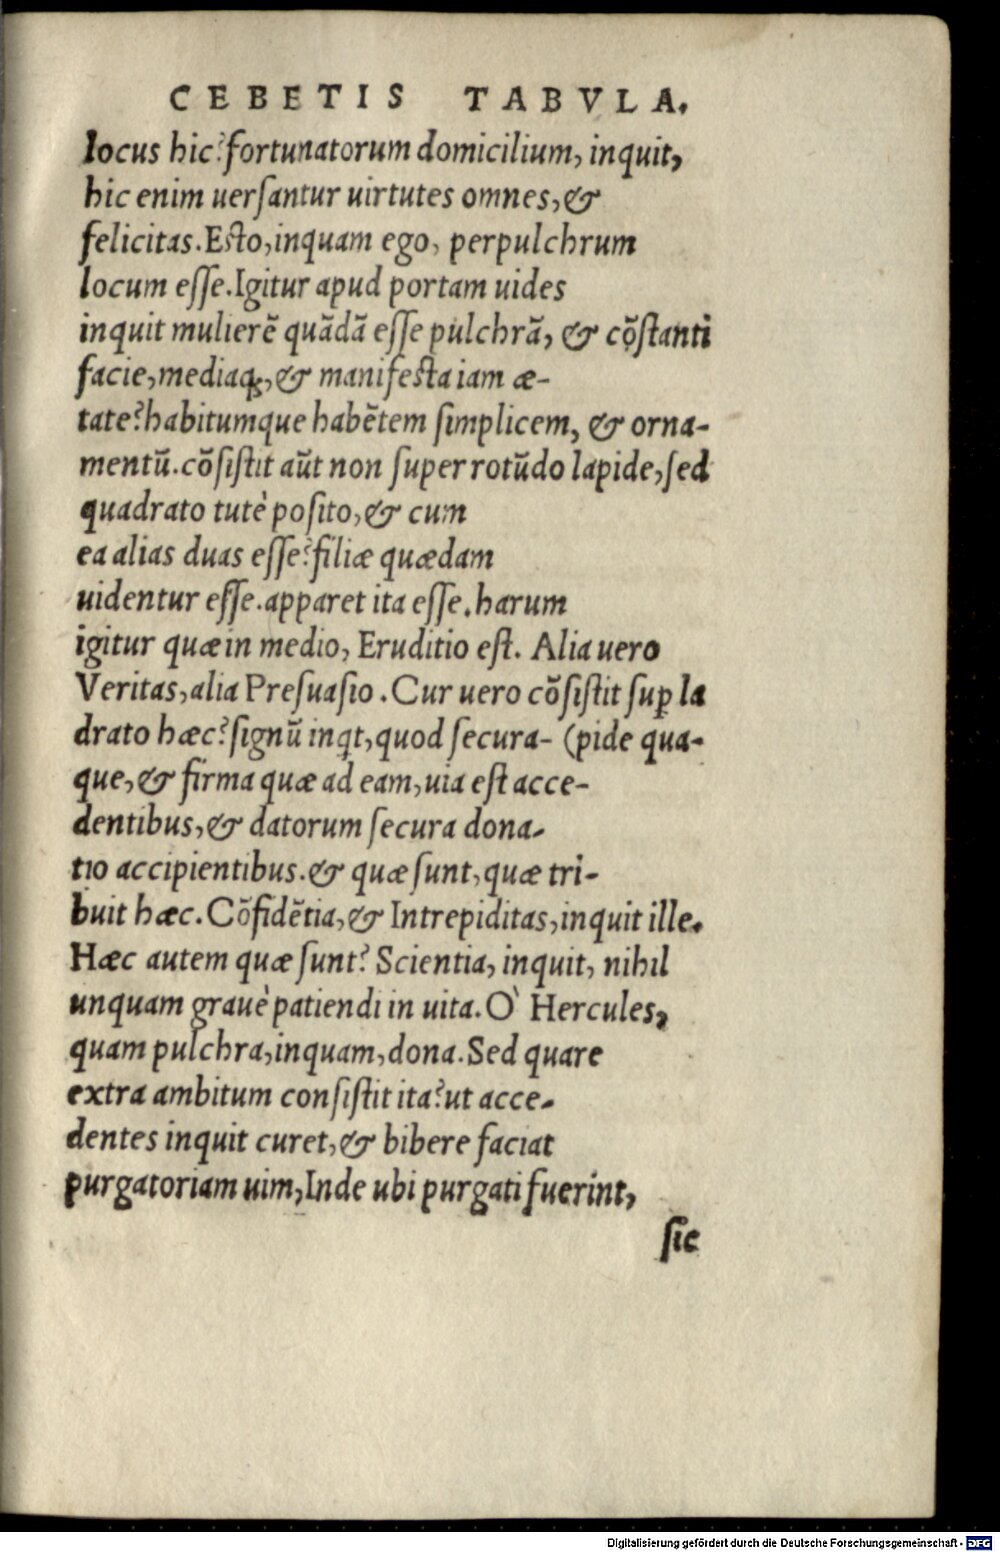 CEBETIS TABVLA.
locus hic? fortunatorum domicilium, inquit,
hic enim uerſantur uirtutes omnes, &
felicitas. Eſto, inquam ego, perpulchrum
locum eſſe. Igitur apud portam uides
inquit mulierē quādā eſſe pulchrā, & cōſtanti
facie, mediaqꝫ, & manifeſta iam æ-
tate? habitumque habētem ſimplicem, & orna-
mentū. cōſiſtit aūt non ſuper rotūdo lapide, ſed
quadrato tutè poſito, & cum
ea alias duas eſſe? filiæ quædam
uidentur eſſe. apparet ita eſſe. harum
igitur quæ in medio, Eruditio eſt. Alia uero
Veritas, alia Preſuaſio. Cur uero cōſiſtit ſuꝑ la
drato hæc? ſignū inqt, quod ſecura- (pide qua-
que, & firma quæ ad eam, uia eſt acce-
dentibus, & datorum ſecura dona-
tio accipientibus. & quæ ſunt, quæ tri-
buit hæc. Cōfidētia, & Intrepiditas, inquit ille.
Hæc autem quæ ſunt? Scientia, inquit, nihil
unquam grauè patiendi in uita. Ò Hercules,
quam pulchra, inquam, dona. Sed quare
extra ambitum conſiſtit ita? ut acce-
dentes inquit curet, & bibere faciat
purgatoriam uim, Inde ubi purgati fuerint,
ſic
Digitalisierung gefördert durch die Deutsche Forschungsgemeinschaft - DFG